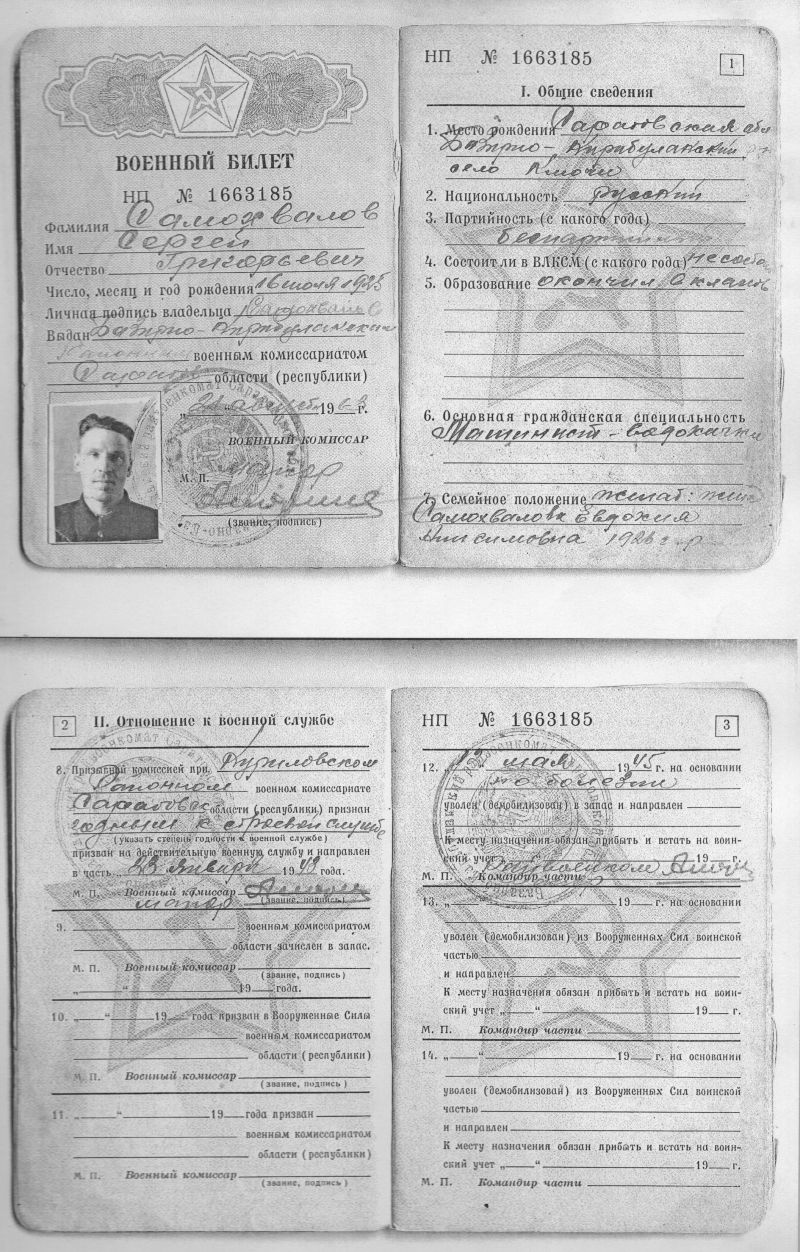 ВОЕННЫЙ БИЛЕТ
НП № 1663185
Фамилия Самохвалов
Имя Сергей
Отчество Григорьевич
Число, месяц и год рождения 16 июля 1925
Личная подпись владельца
Выдан Базарно-Карабулакским
Районным военным комиссариатом
Саратов области (республики)
19 г.
ВОЕННЫЙ КОМИССАР
майор
М. П.
(звание, подпись)
НП № 1663185
1
I. Общие сведения
1. Место рождения Саратовская обл
Базарно-Карабулакский
село Ключи
2. Национальность русский
3. Партийность (с какого года)
беспартийный
4. Состоит ли в ВЛКСМ (с какого года)
5. Образование окончил классов
6. Основная гражданская специальность
Машинист-водокачки
7. Семейное положение женат: жена
Самохвалова Евдокия
Анисимовна 1923 г. р
2
II. Отношение к военной службе
8. Призывной комиссией при Куриловском
Районном военном комиссариате
Саратовск области (республики) признан
годным к строевой службе
(указать степень годности к военной службе)
призван на действительную военную службу и направлен
в часть „23 января 1943 года.
М. П. Военный комиссар
майор (звание, подпись)
9. военным комиссариатом
области зачислен в запас.
М. П. Военный комиссар
(звание, подпись)
„ “ 19 года.
10. „ “ 19 года призван в Вооруженные Силы
военным комиссариатом
области (республики)
М. П. Военный комиссар
(звание, подпись)
11. „ “ 19 года призван
военным комиссариатом
области (республики)
М. П. Военный комиссар
(звание, подпись)
НП № 1663185
3
12. мая 1945 г. на основании
по болезни
уволен (демобилизован) в запас и направлен
К месту назначения обязан прибыть и встать на воин-
ский учет „ “ 19 г.
М. П. Командир части
13. „ “ 19 г. на основании
уволен (демобилизован) из Вооруженных Сил воинской
частью
и направлен
К месту назначения обязан прибыть и встать на воин-
ский учет „ “ 19 г.
М. П. Командир части
14. „ “ 19 г. на основании
уволен (демобилизован) из Вооруженных Сил воинской
частью
и направлен
К месту назначения обязан прибыть и встать на воин-
ский учет „ “ 19 г.
М. П. Командир части